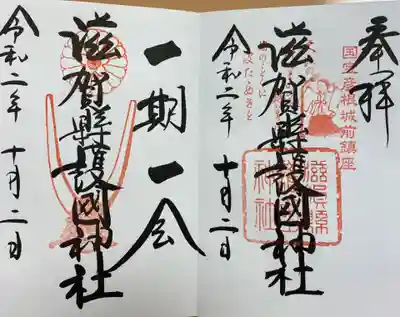 奉拝
国宝彦根城前鎮座
滋賀縣護國神社
令和二年 十月二日
一期一会
滋賀縣護國神社
令和二年 十月二日